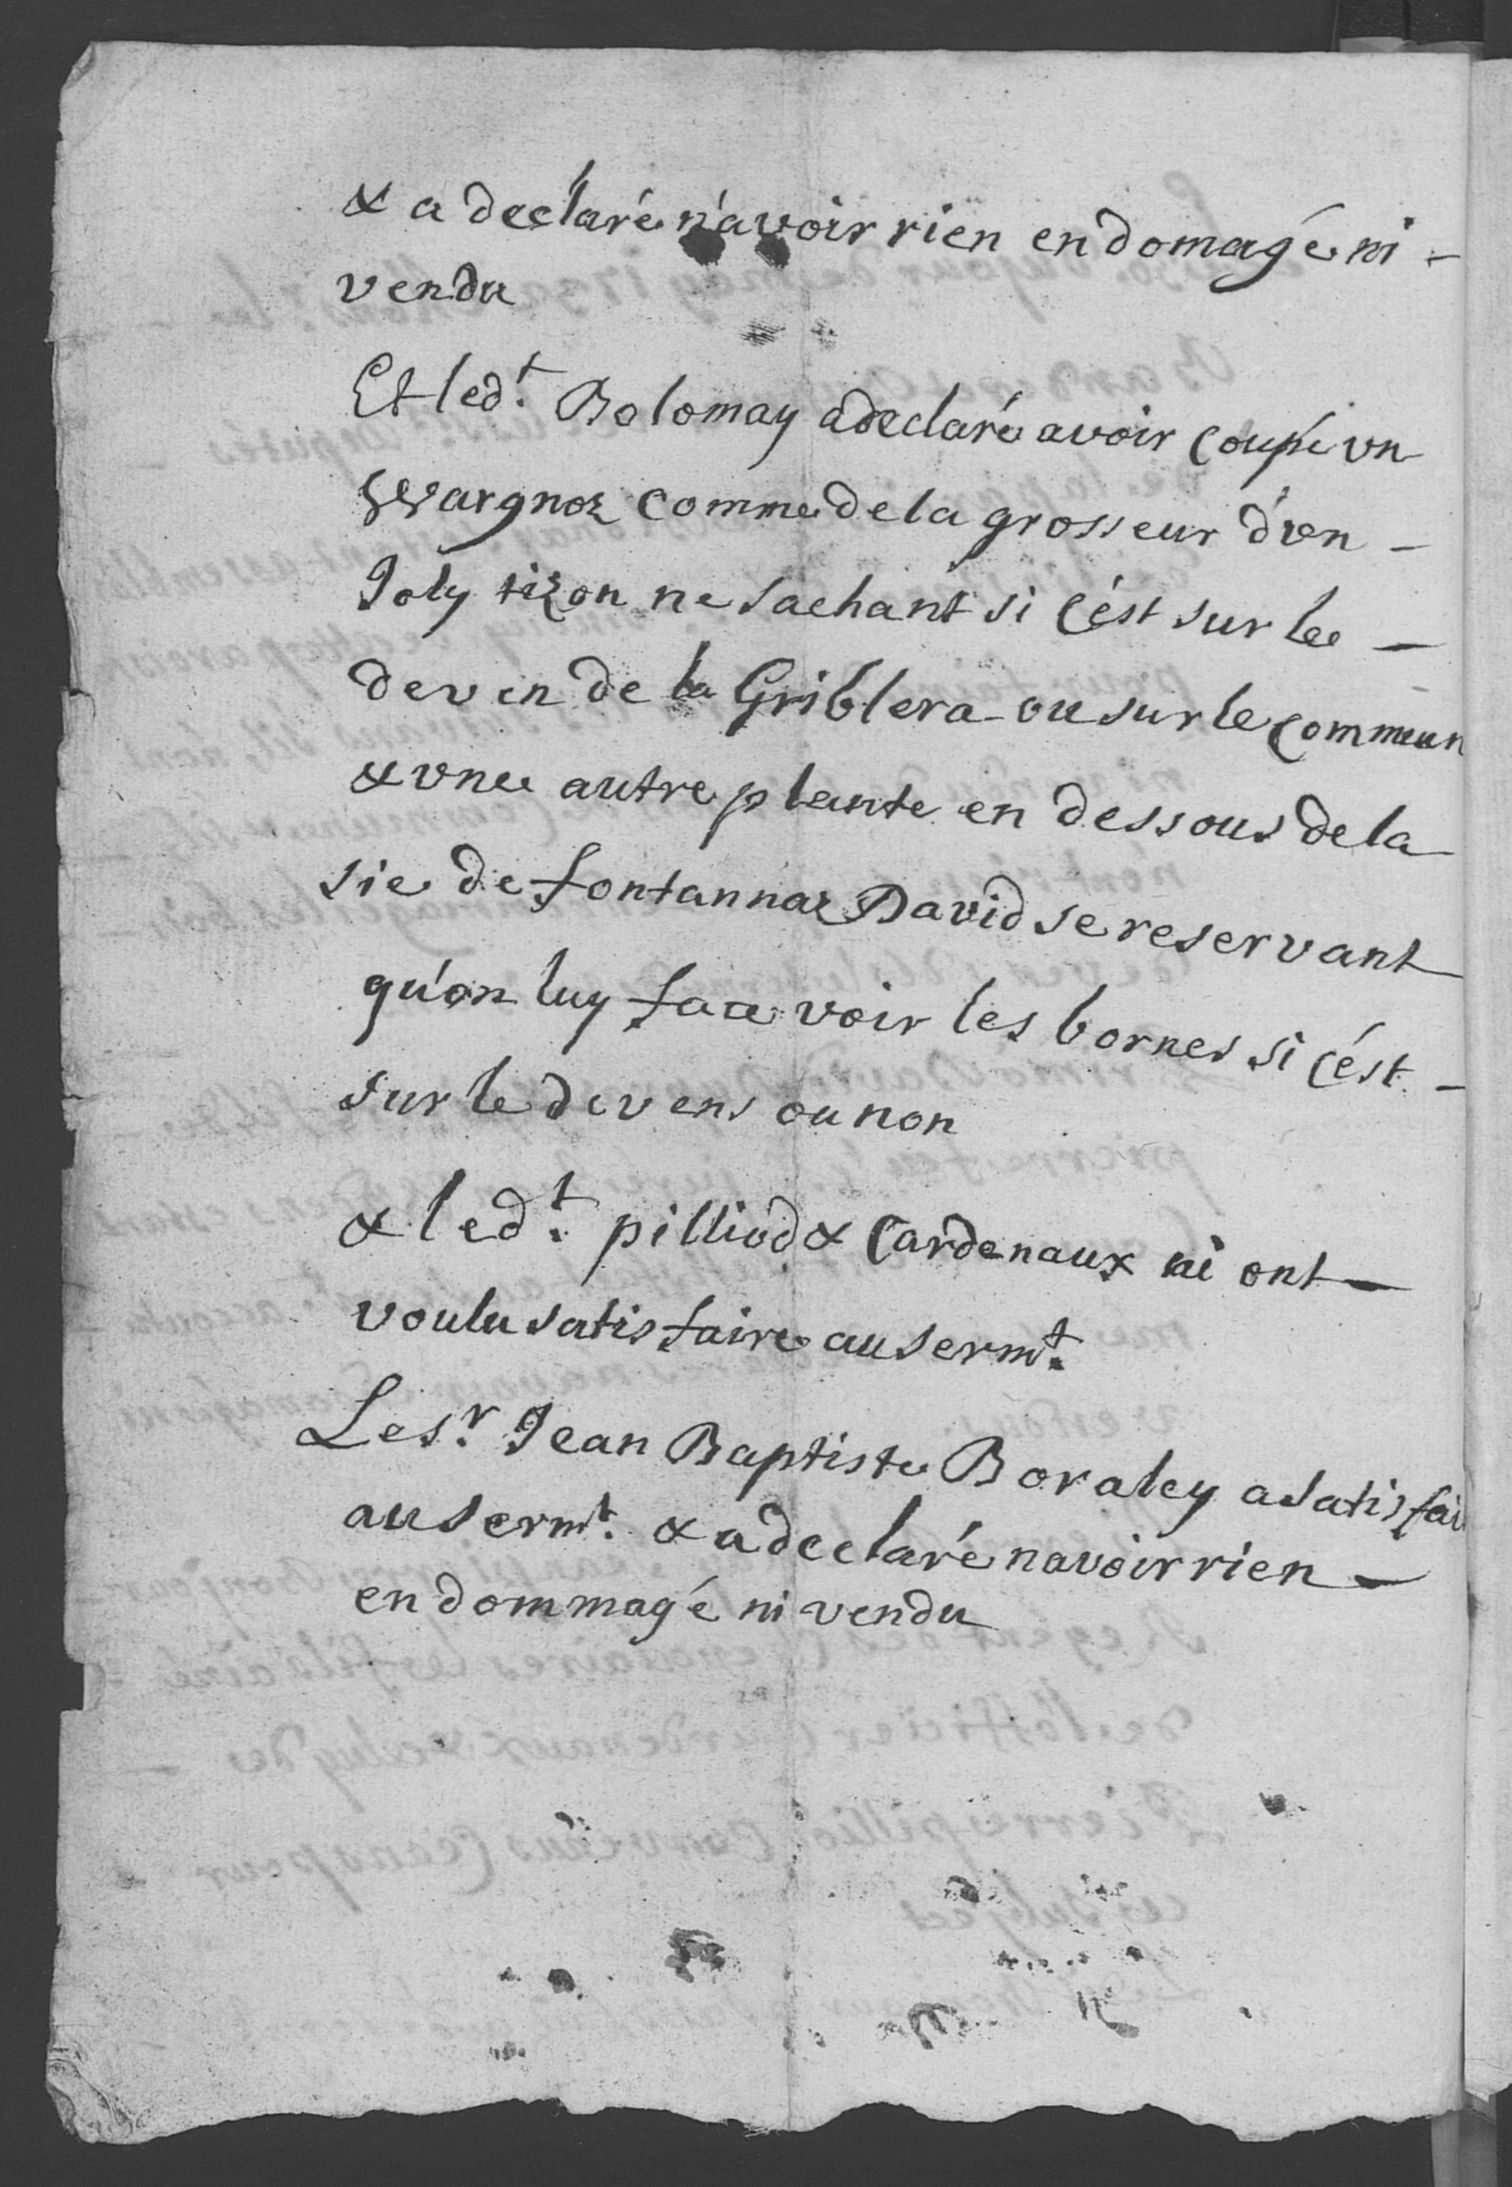 & a declaré n'avoir rien endomagé ni -
vendu
Et led.t Bolomay a declaré avoir coupé vn
Wargnoz comme de la grosseur d'vn -
Joly tizon ne sachant si c'ést sur le -
deven de la Griblera ou sur le commun
& vne autre plante en dessous de la
sie de fontannaz David se reservant
qu'on luy face voir les bornes si c'ést -
sur le devens ou non
& led.t pilliod & Cardenaux ni ont -
voulu satisfaire au serm.t
Le s.r Jean Baptiste Boraley a satisfai
au serm.t & a declaré navoir rien -
en dommagé ni vendu